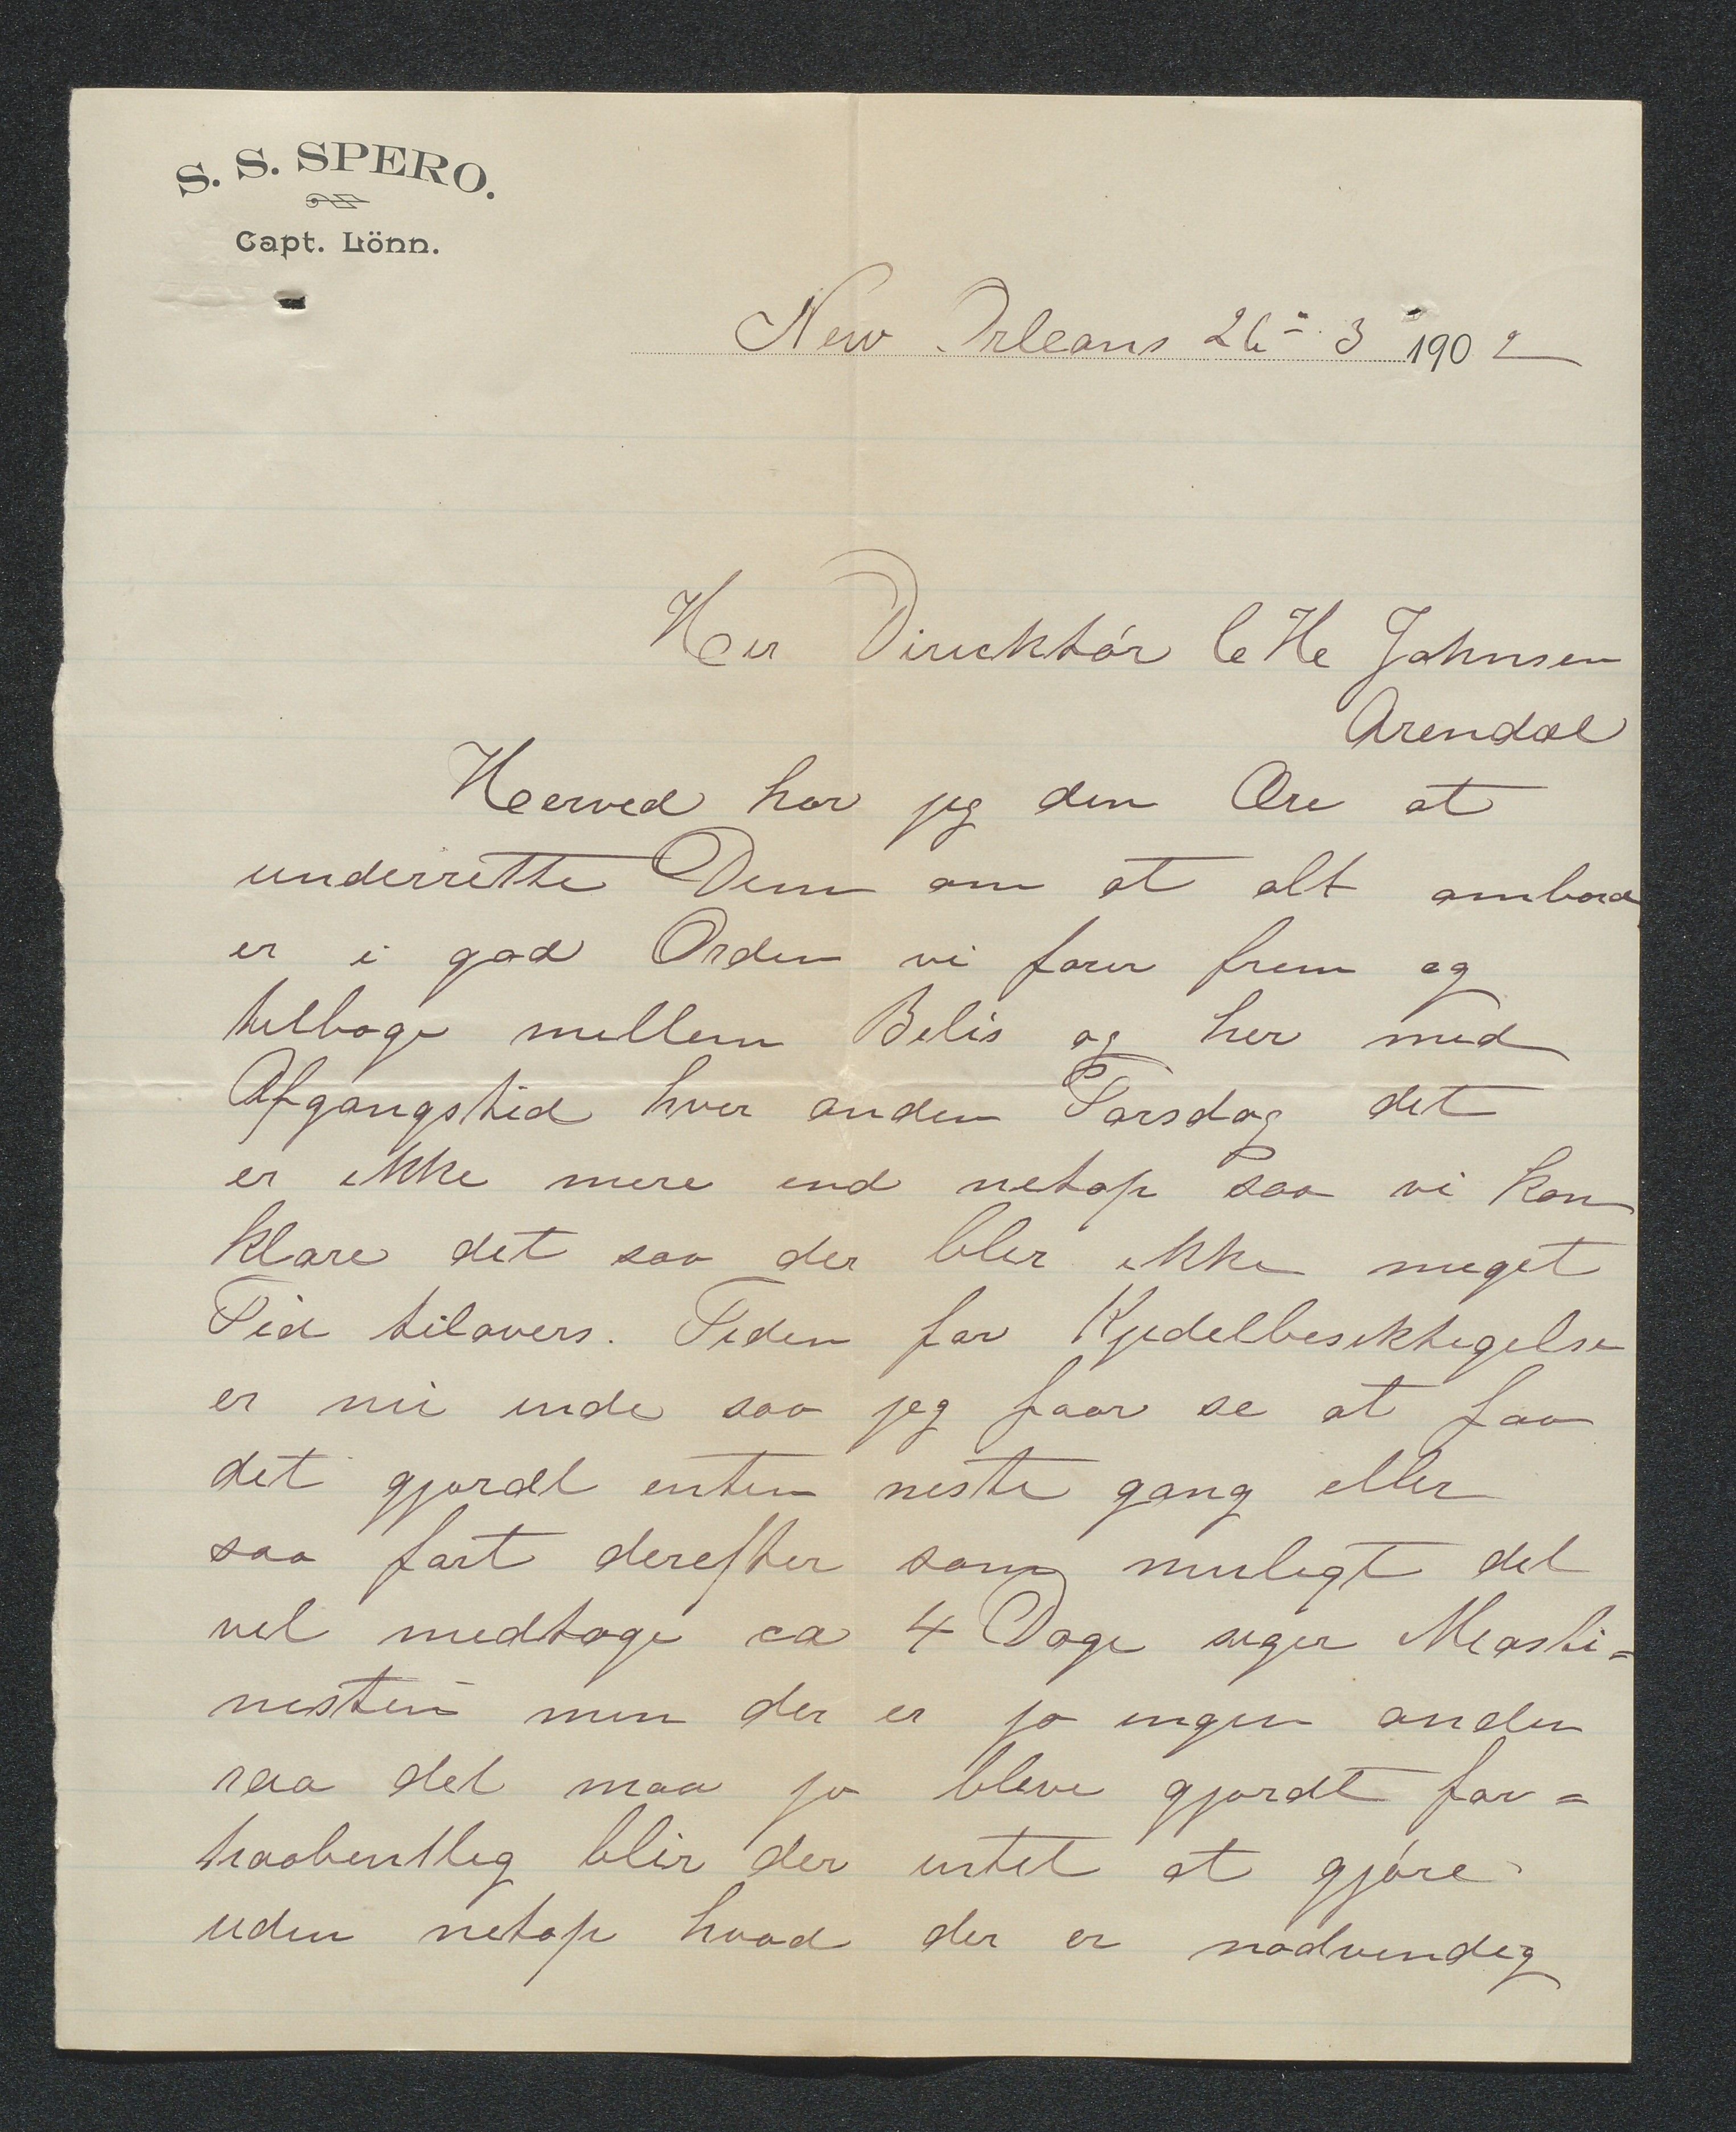 S. S. SPERO.
Capt. Lönn.
New Orleans 26-3 1902
Herr Direcktör C H Johnsen
Arendal
Herved har jeg den Ære at
underrette Dem om at alt ombord
er i god Orden vi farer frem og
tilbage mellem Belis og her med
Afgangstid hver anden Torsdag det
er ikke mere end netop saa vi kan
klare det saa der blir ikke meget
Tid tilovers. Tiden for Kjedelbesiktigelse
er nu inde saa jeg faar se at faa
det gjordt enten neste gang eller
saa fort derefter som muligt det
vil medtage ca 4 Dage siger Maski=
nisten men der er jo ingen anden
raa det maa jo blive gjordt for=
haabentlig blir der intet at gjöre
uden netop hvad der er nödvendig